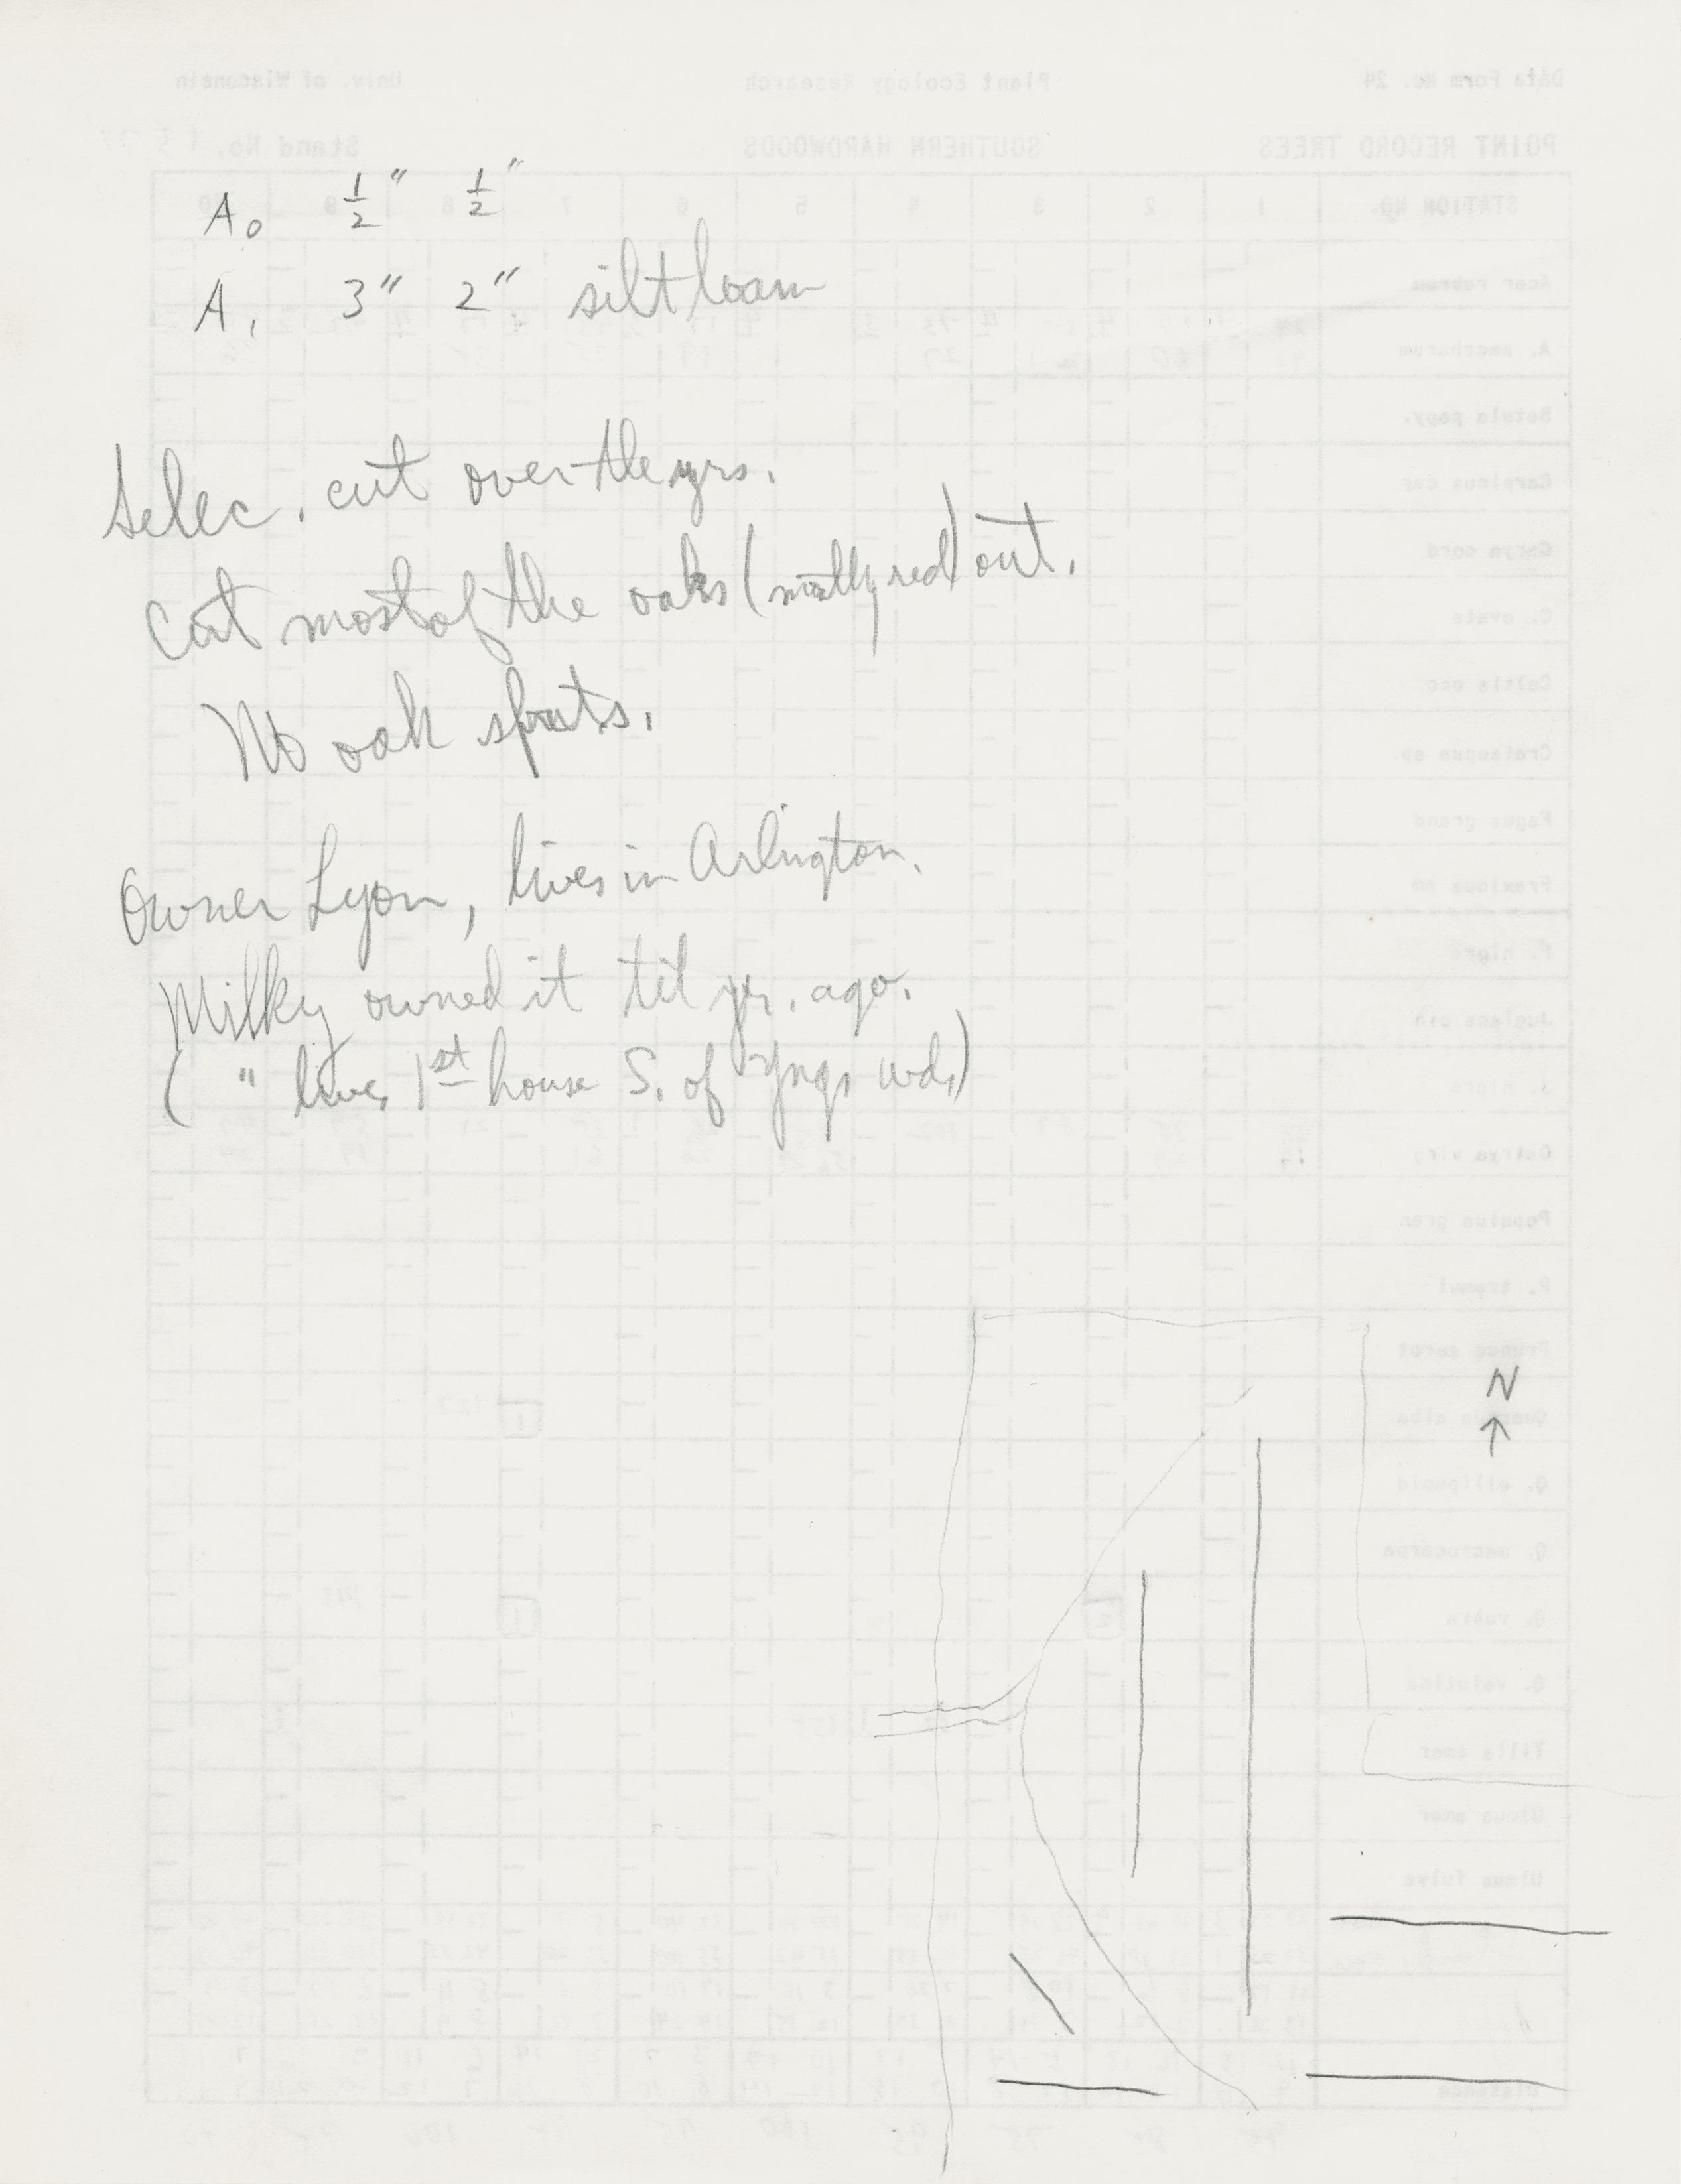 A₀ ½" ½"
A₁ 3" 2" silt loam
Selec. cut over the yrs.
Cut most of the oaks (mostly red) out.
No oak sprouts.
Owner Lyon, lives in Arlington.
Milky owned it til yr. ago.
( " lives 1st house S. of wds)
N